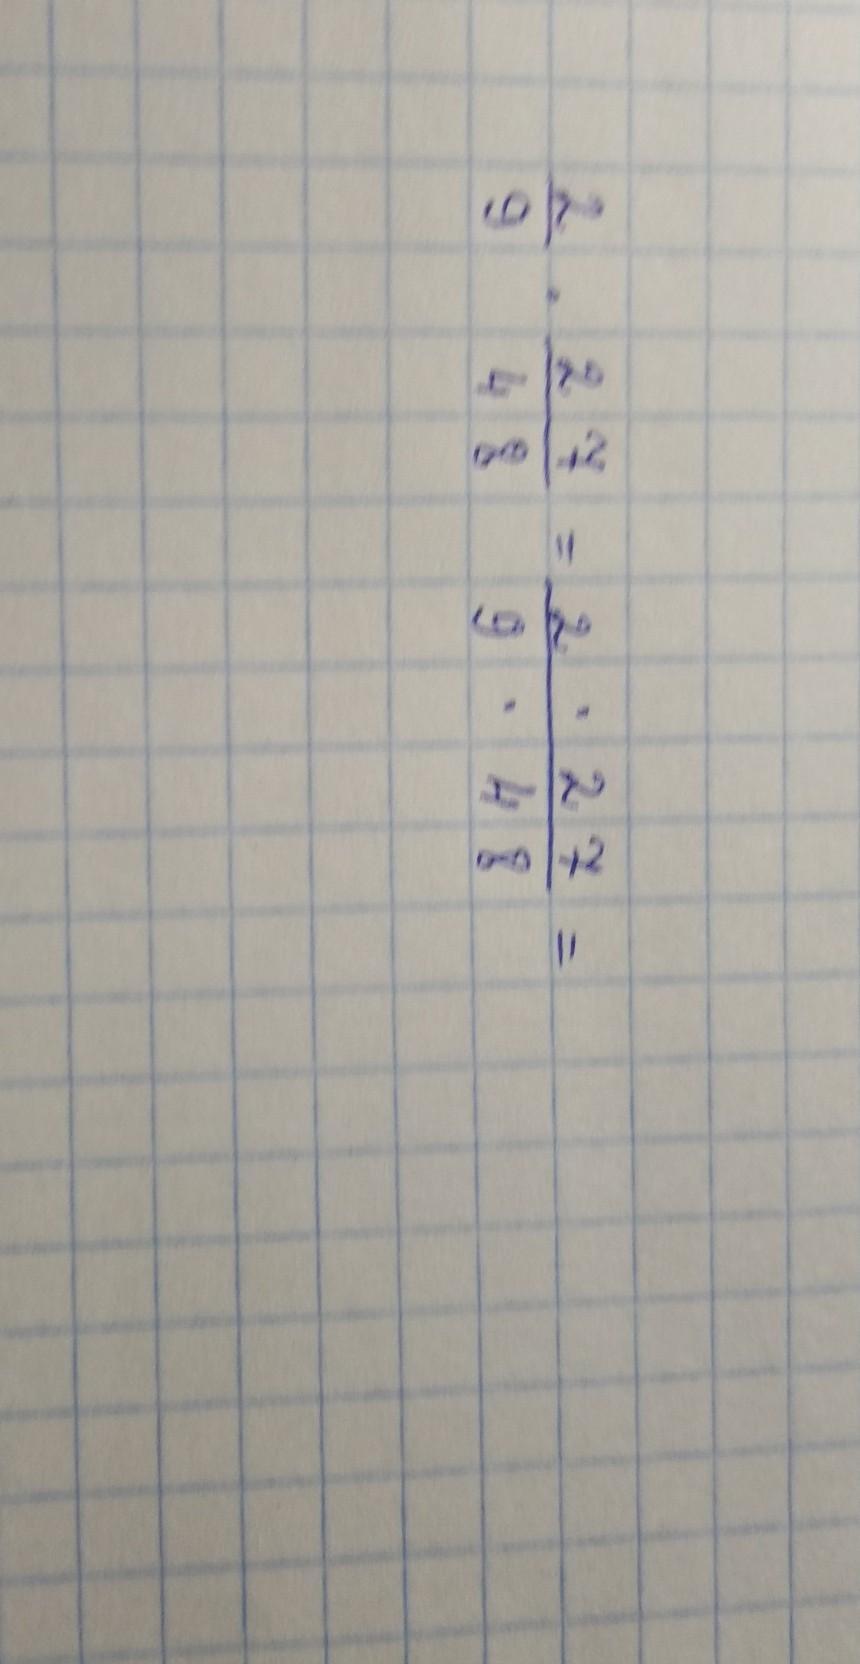 2/9 · 27/48 = 2 · 27/9 · 48 =